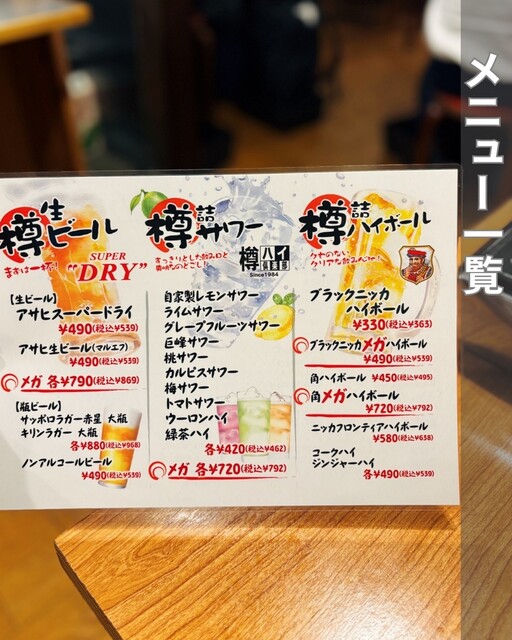 メニュー一覧
樽生ビール
まずは一杯!
SUPER
"DRY"
【生ビール】
アサヒスーパードライ
¥490(税込¥539)
アサヒ生ビール(マルエフ)
¥490(税込¥539)
メガ 各¥790(税込¥869)
【瓶ビール】
サッポロラガー赤星 大瓶
キリンラガー 大瓶
各¥880(税込¥968)
ノンアルコールビール
¥490(税込¥539)
樽詰サワー
すっきりとした飲み口と
爽快なのどごし!
樽ハイ倶楽部
Since1984
自家製レモンサワー
ライムサワー
グレープフルーツサワー
巨峰サワー
桃サワー
カルピスサワー
梅サワー
トマトサワー
ウーロンハイ
緑茶ハイ
各¥420(税込¥462)
メガ 各¥720(税込¥792)
樽詰ハイボール
クセのない
クリアな飲みごこち!
ブラックニッカ
ハイボール
¥330(税込¥363)
ブラックニッカメガハイボール
¥490(税込¥539)
角ハイボール ¥450(税込¥495)
角メガハイボール
¥720(税込¥792)
ニッカフロンティアハイボール
¥580(税込¥638)
コークハイ
ジンジャーハイ
各¥490(税込¥539)